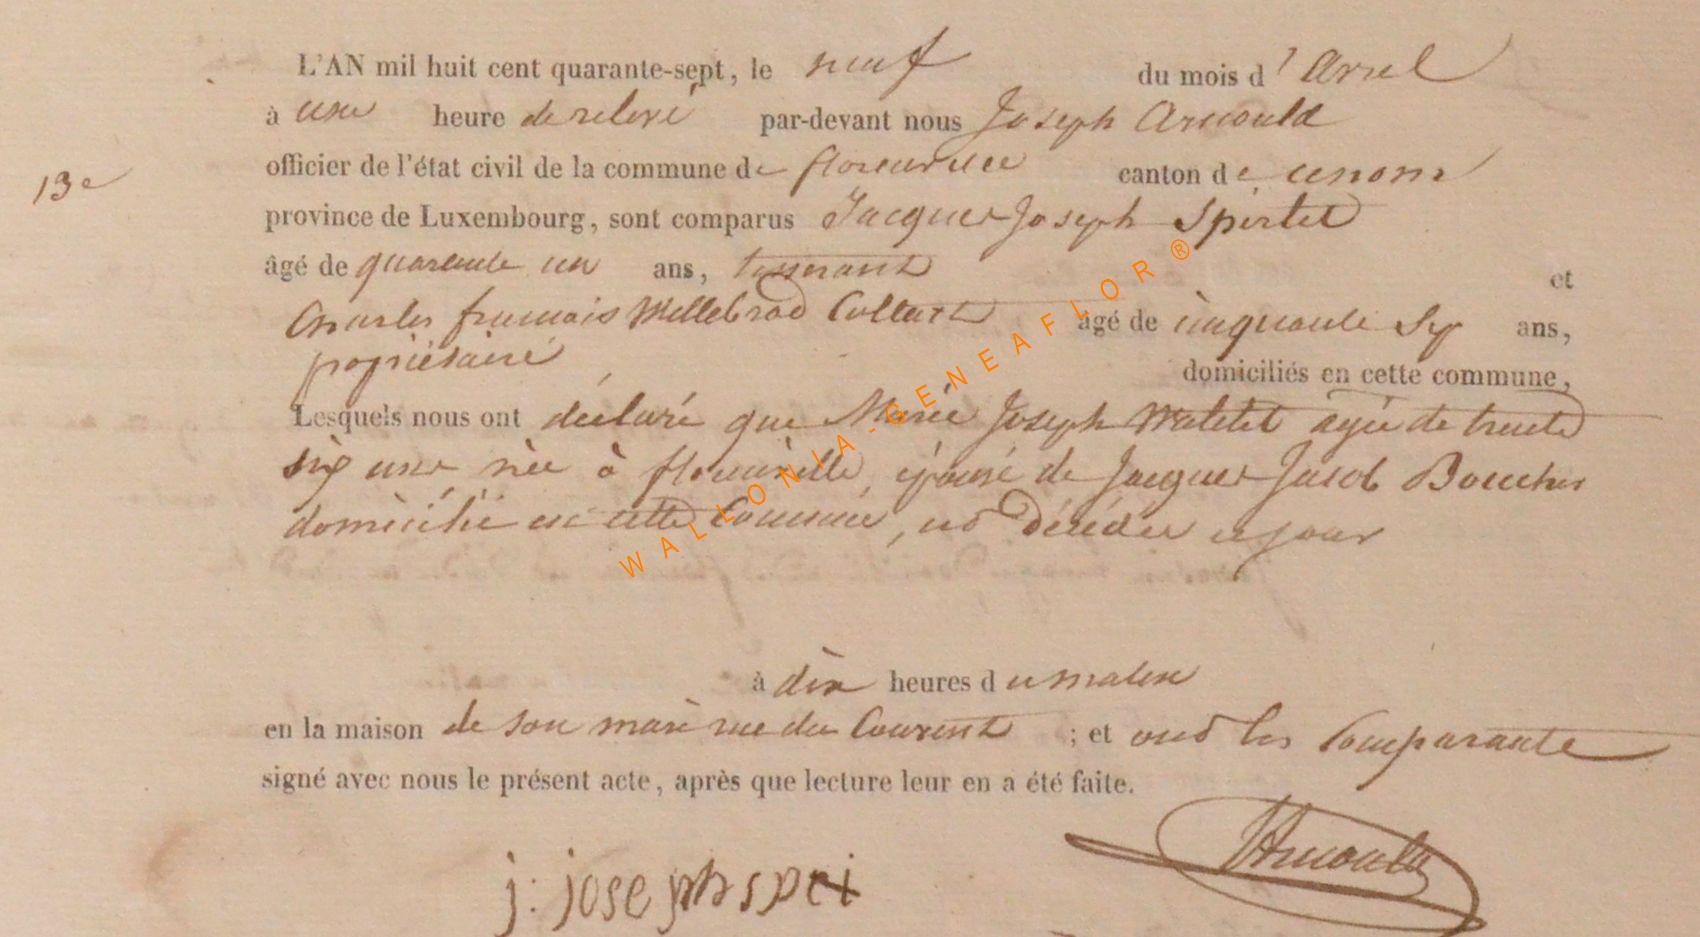 L'AN mil huit cent quarante-sept, le neuf du mois d'Avril
à une heure de relevé par-devant nous Joseph Arnould
officier de l'état civil de la commune de florenville canton de
13e
province de Luxembourg, sont comparus Jacques Joseph
âgé de quarante un ans, tisserant et
Charles francois Willebrod Collart âgé de cinquante Six ans,
propriétaire
domiciliés en cette commune,
Lesquels nous ont déclaré que Marie Joseph Watelet agée de trente
six ans née à florenville, épouse de Jacques Jacob Boucher
domicilié en cette Commune, est décédée ce jour
à dix heures du matin
en la maison de son mari rue du Courent ; et ont les Comparants
signé avec nous le présent acte, après que lecture leur en a été faite.
JArnould
j: joseph
WALLONIA-GENEAFLOR®